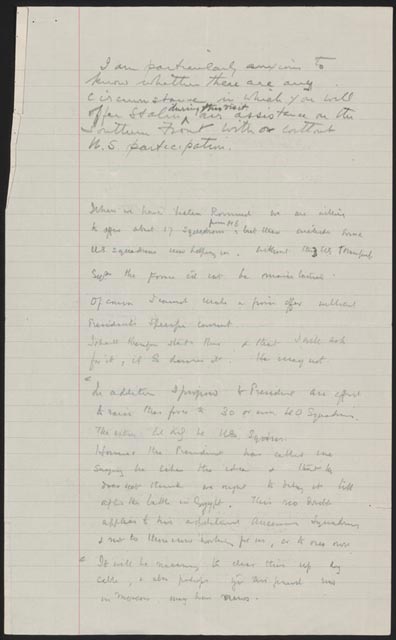 I am particularly anxious to
know whether there are any
circumstances in which you will
during this visit
offer Stalin air assistance on the
Southern Front with or without
U.S. participation.
When we have beaten Rommel we are willing
from M.E.
to offer about 17 squadrons, but these include some
U.S. squadrons now helping us. Without any U.S. Transport
the force could not be maintained.
Of course I cannot make a firm offer without
President's specific consent.
I shall therefore state this & that I will ask
for it, if he desires it. He may not.
In addition I proposed to President an effort
to raise this force to 30 or even 40 Squadrons.
The extra to be U.S. Squadrons.
However the President has cabled me
saying he likes the idea & that he
does not think we ought to bring it till
after the battle in Egypt. This no doubt
applies to his additional American Squadrons
& not to those now working for us, or to our own.
It will be necessary to clear this up by
cable, & also perhaps your friend
in Moscow may have views.